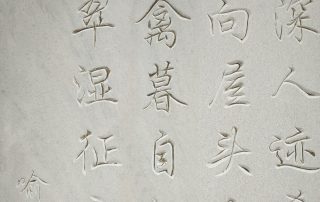 深人迹
向屋头
禽暮自
翠湿征
喻